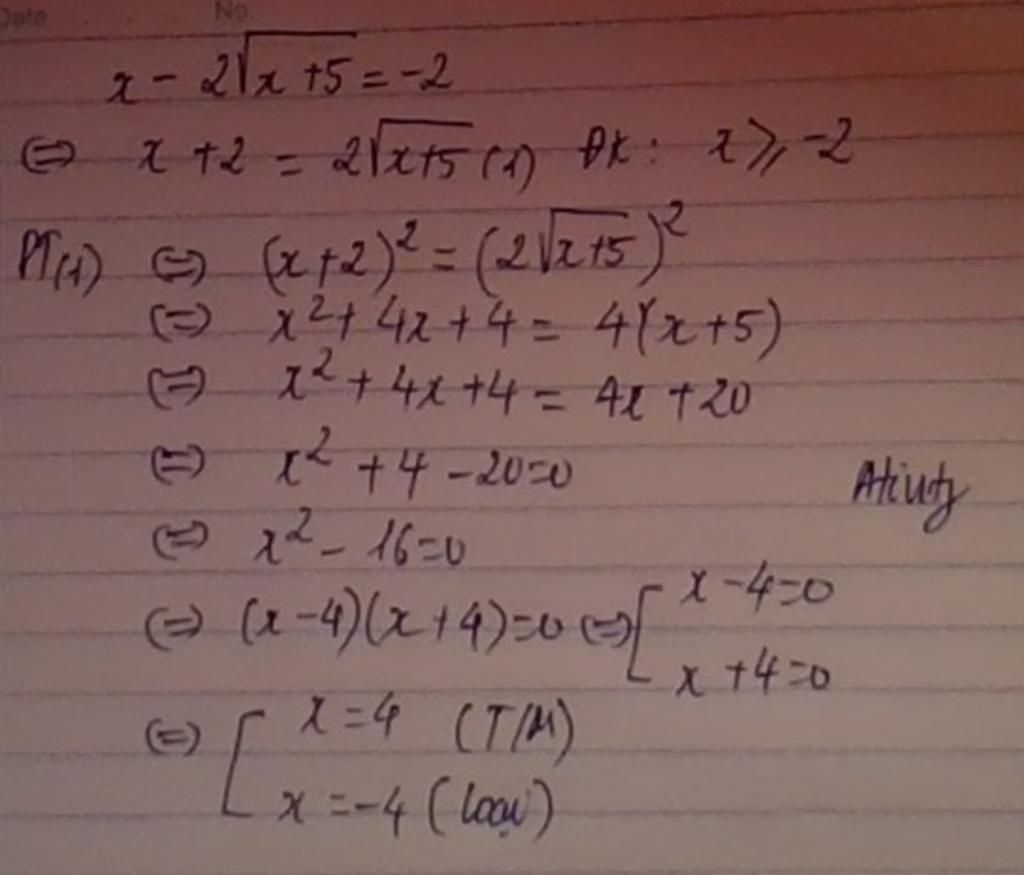 Date No.
x - 2√(x+5) = -2
⇔ x + 2 = 2√(x+5) (1) ĐK: x ≥ -2
PT(1) ⇔ (x+2)² = (2√(x+5))²
⇔ x² + 4x + 4 = 4(x+5)
⇔ x² + 4x + 4 = 4x + 20
⇔ x² + 4 - 20 = 0
⇔ x² - 16 = 0
⇔ (x-4)(x+4) = 0 ⇔ [ x - 4 = 0
x + 4 = 0
⇔ [ x = 4 (T/M)
x = -4 (loại)